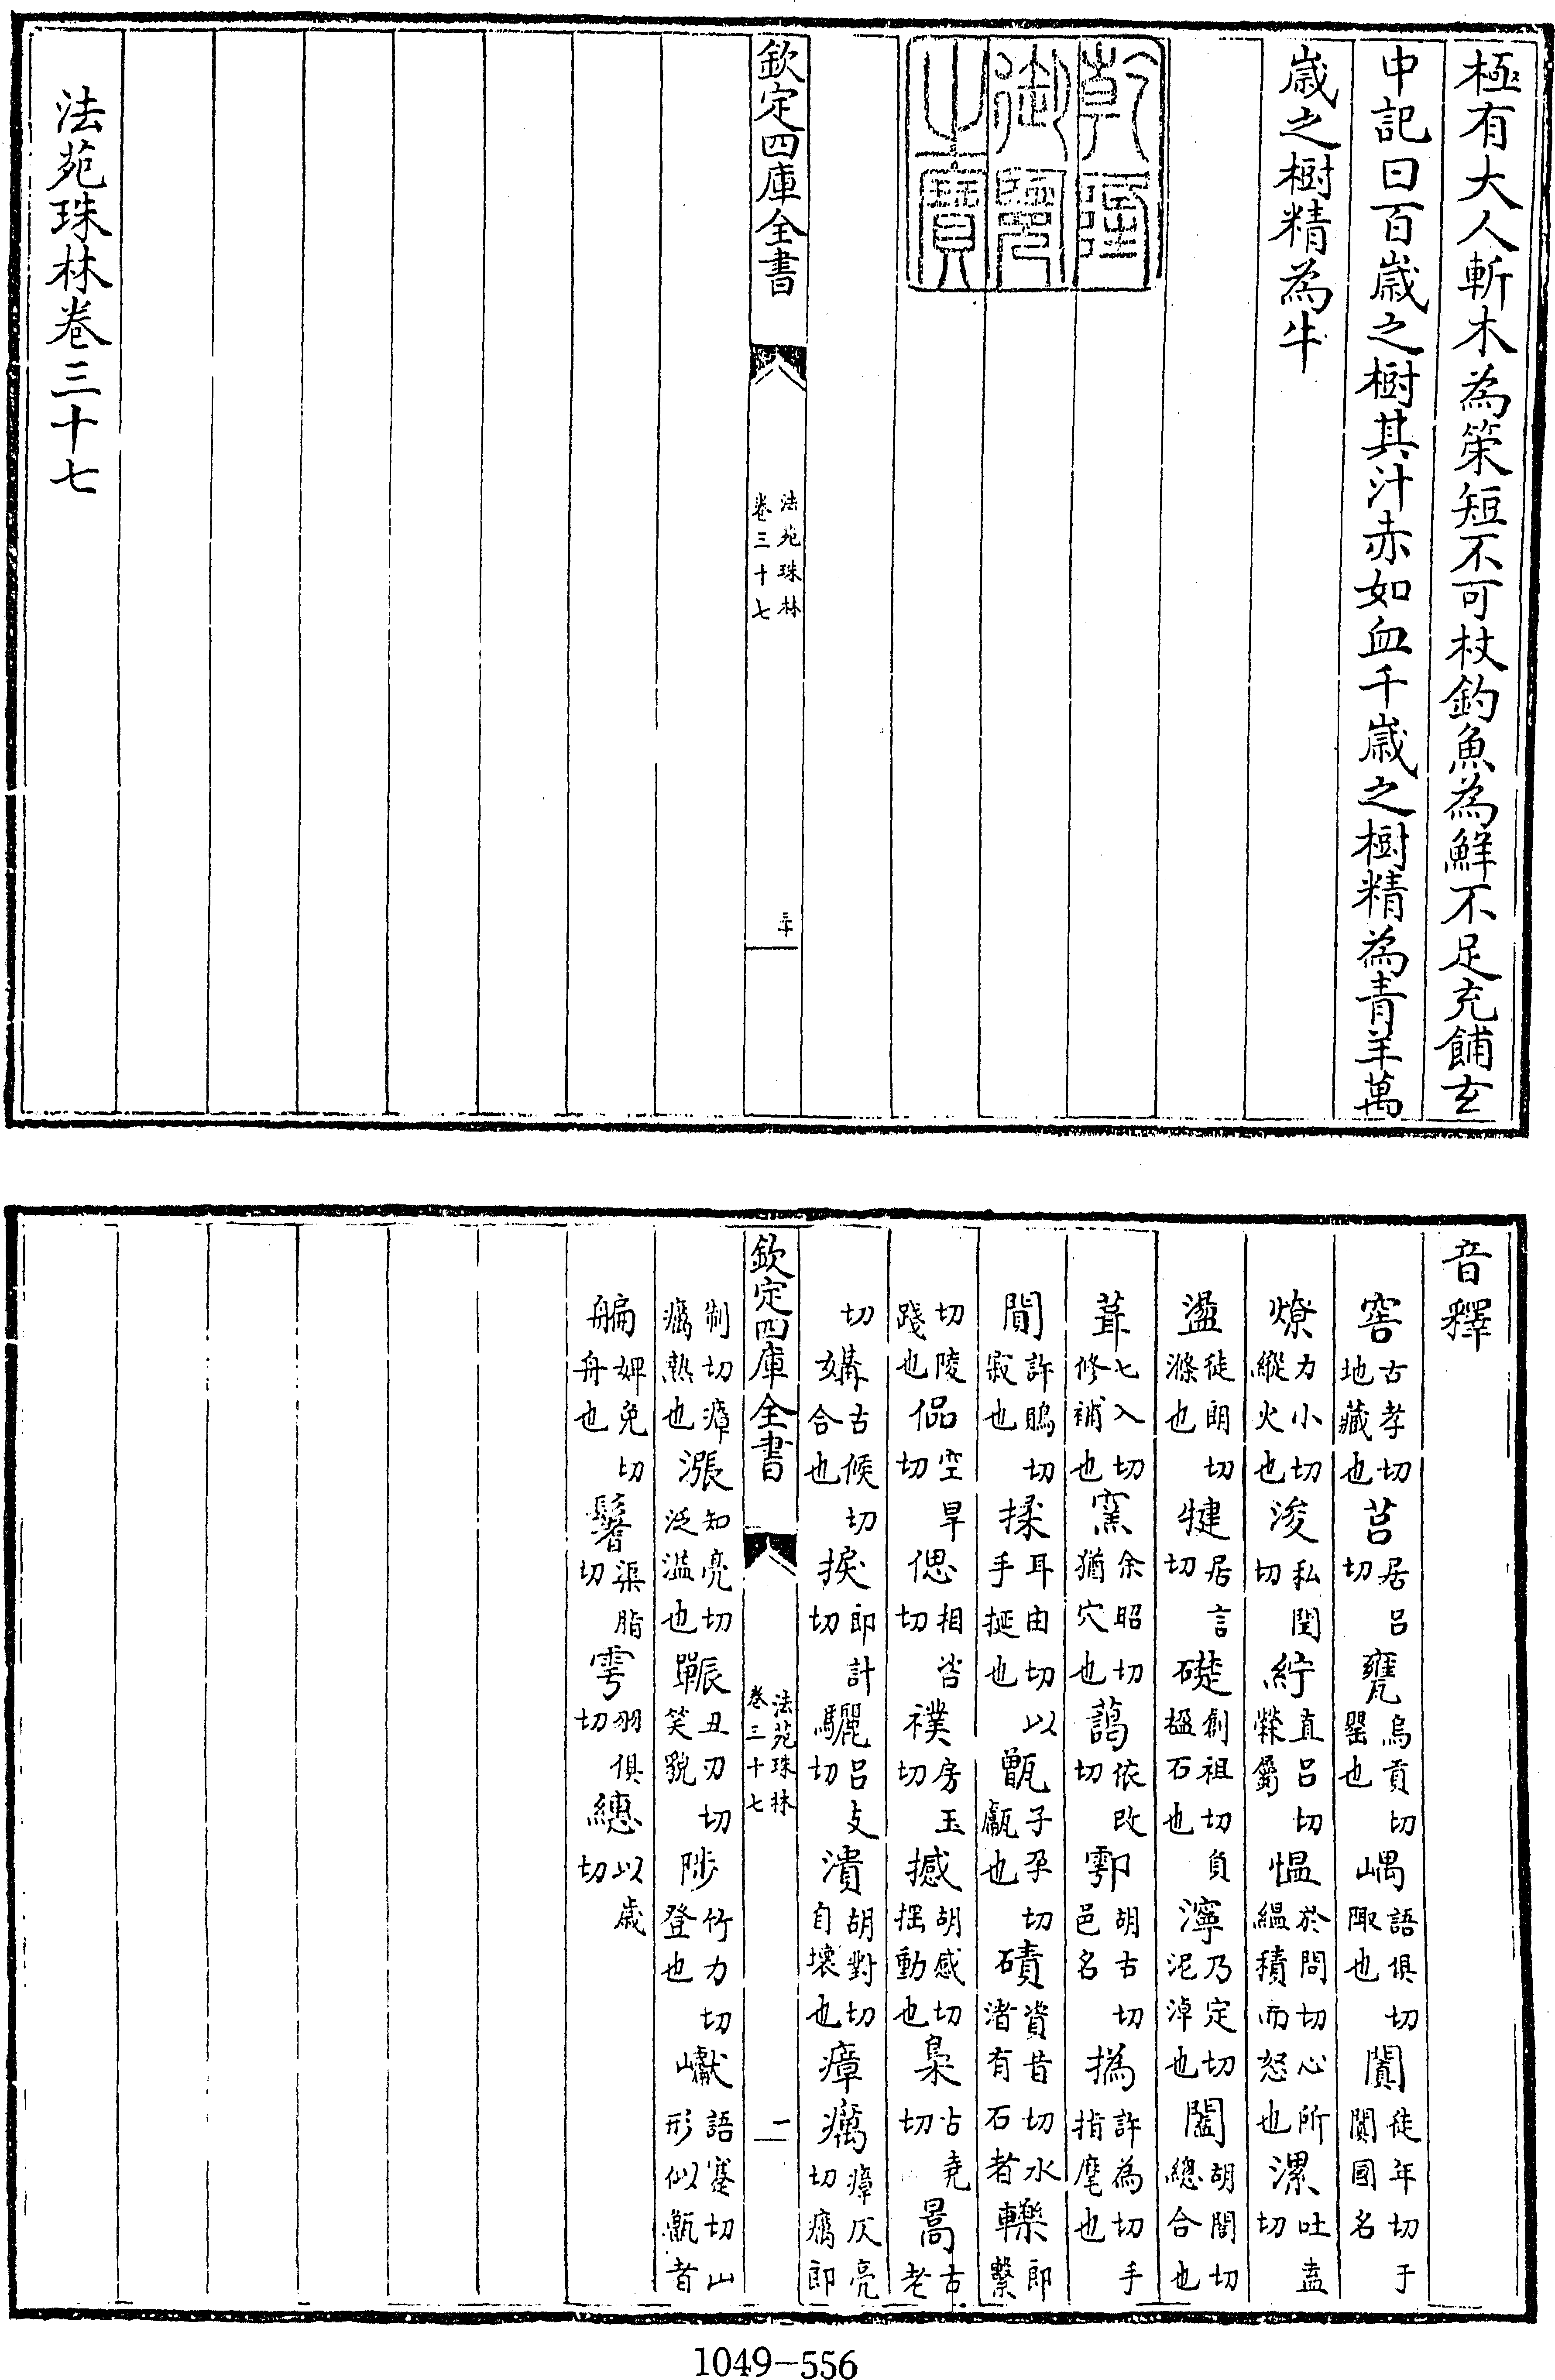 極有大人斬木為策短不可杖釣魚為鮮不足充餔玄
中記曰百歳之樹其汁赤如血千歳之樹精為青羊萬
歳之樹精為牛
乾隆御覽之寶
欽定四庫全書
法苑珠林
卷三十七
三十
法苑珠林卷三十七
音釋
窖古孝切地藏也莒居呂切甕烏貢切罌也嵎語俱切陬也闐徒年切于闐國名
燎力小切縱火也浚私閏切紵直呂切檾屬愠於問切心所緼積而怒也漯吐盍切
盪徒朗切滌也犍居言切礎創祖切負楹石也濘乃定切泥淖也闔胡閤切總合也
葺七入切修補也窯余昭切猶穴也藹依改切鄠胡古切邑名撝許為切手指麾也
閴許鵙切寂也揉耳由切以手挻也甑子孕切甗也磧資昔切水渚有石者轢郎擊
切陵踐也侃空旱切偲相咨切襆房玉切撼胡感切揺動也梟古堯切暠古老
切媾古候切合也捩郎計切驪呂支切潰胡對切自壞也瘴癘瘴仄亮切癘郎
欽定四庫全書
法苑珠林
卷三十七
一
制切瘴癘熱也漲知亮切泛溢也辴丑刃切笑貌陟竹力切登也巘語蹇切山形似甑者
艑婢免切舟也鬐渠脂切雩羽俱切繐以歳切
1049-556